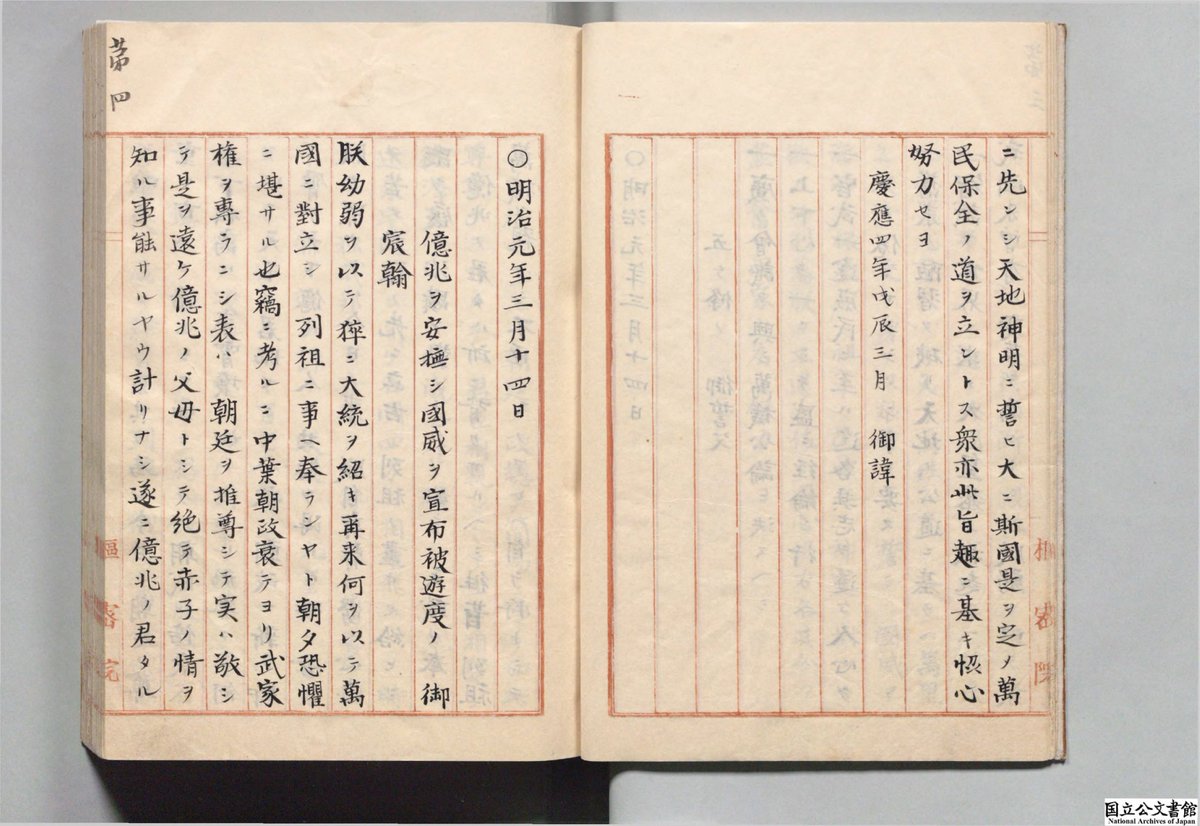 ニ先ンシ天地神明ニ誓ヒ大ニ斯國是ヲ定メ萬
民保全ノ道ヲ立ントス衆亦此旨趣ニ基キ恊心
努力セヨ
慶應四年戊辰三月 御諱
樞密院
第四
〇明治元年三月十四日
億兆ヲ安撫シ國威ヲ宣布被遊度ノ御
宸翰
朕幼弱ヲ以テ猝ニ大統ヲ紹キ再来何ヲ以テ萬
國ニ對立シ列祖ニ事ヘ奉ランヤト朝夕恐懼
ニ堪サル也竊ニ考ルニ中葉朝政衰テヨリ武家
権ヲ專ラニシ表ハ朝廷ヲ推尊シテ実ハ敬シ
テ是ヲ遠ケ億兆ノ父母トシテ絶テ赤子情ヲ
知ル事能サルヤウ計リナシ遂ニ億兆ノ君タル
樞密院
国立公文書館
National Archives of Japan